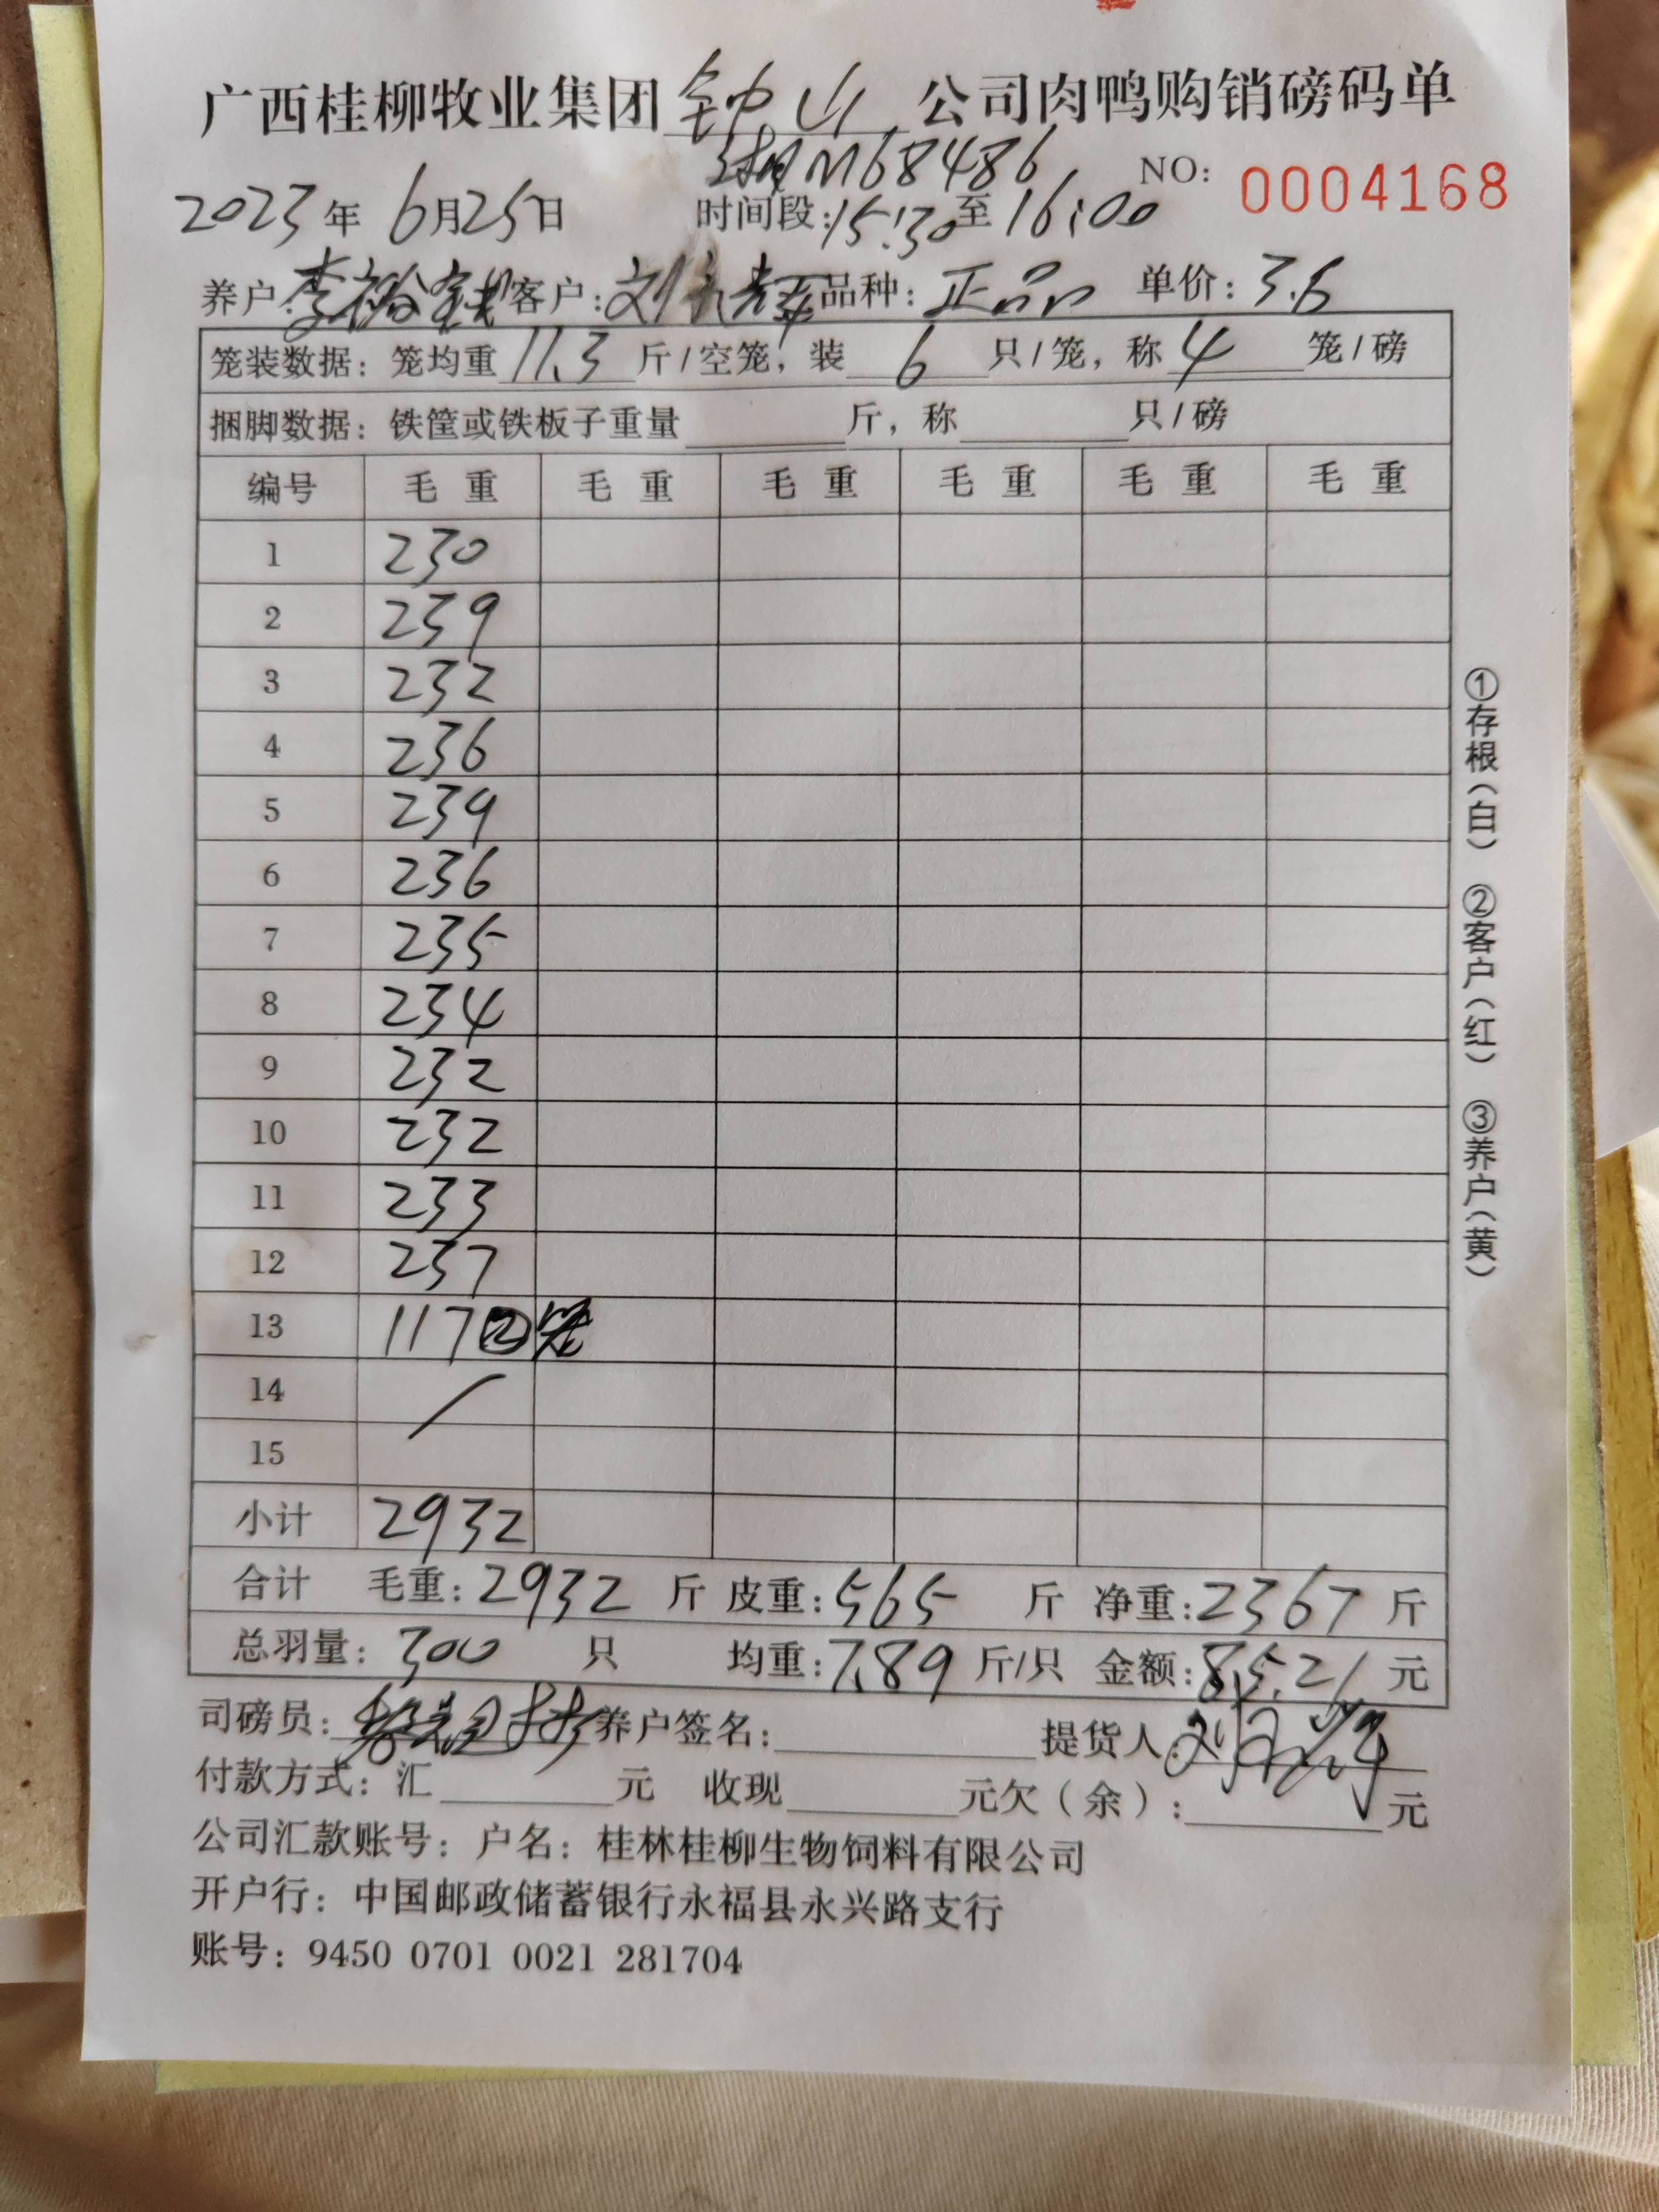 广西桂柳牧业集团钟山公司肉鸭购销磅码单
湘M68486
NO: 0004168
2023年6月25日 时间段:15:30至16:00
养户:李裕 客户:刘 品种:正品 单价:3.6
笼装数据: 笼均重11.3斤/空笼, 装6只/笼, 称4笼/磅
捆脚数据: 铁筐或铁板子重量 斤, 称 只/磅
编号 毛重 毛重 毛重 毛重 毛重 毛重
1 230
2 239
3 232
4 236
5 239
6 236
7 235
8 234
9 232
10 232
11 233
12 237
13 117②笼
14
15
小计 2932
合计 毛重:2932斤 皮重:565斤 净重:2367斤
总羽量:300只 均重:7.89斤/只 金额:8521元
司磅员: 养户签名: 提货人:刘
付款方式: 汇 元 收现 元欠(余): 元
公司汇款账号: 户名: 桂林桂柳生物饲料有限公司
开户行: 中国邮政储蓄银行永福县永兴路支行
账号: 9450 0701 0021 281704
①存根(白) ②客户(红) ③养户(黄)